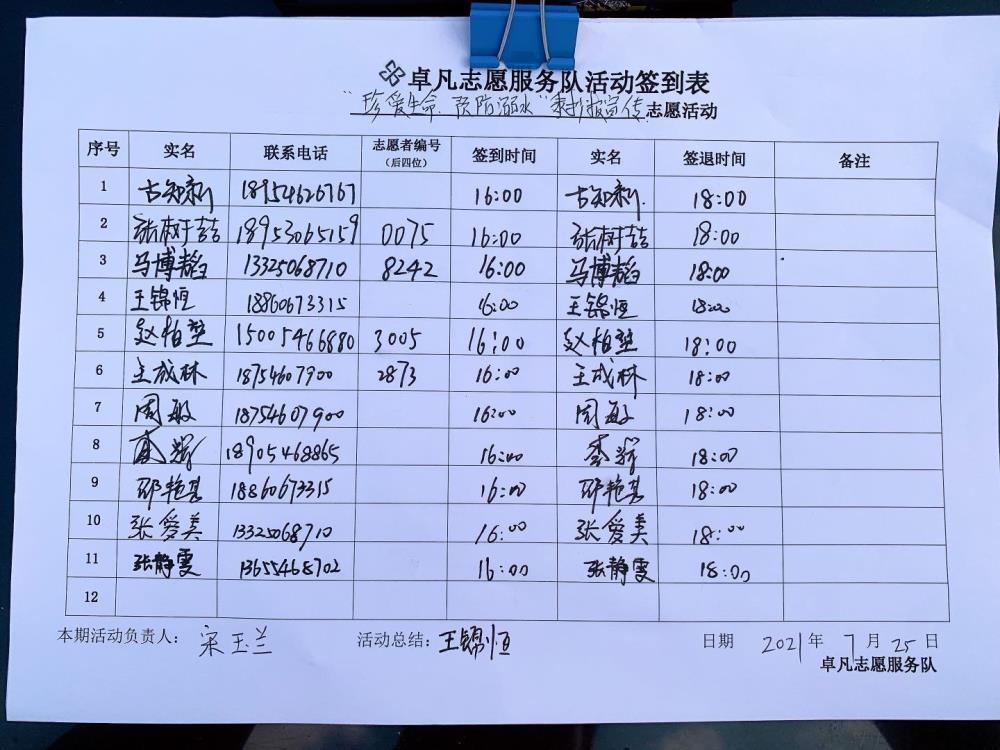 卓凡志愿服务队活动签到表
"珍爱生命、预防溺水" 宣传 志愿活动
序号 实名 联系电话 志愿者编号（后四位） 签到时间 实名 签退时间 备注
1 古知新 18954626767 16:00 古知新 18:00
2 张树喆 18953065159 0075 16:00 张树喆 18:00
3 马博韬 13325068710 8242 16:00 马博韬 18:00
4 王锦恒 18860673315 16:00 王锦恒 18:00
5 赵柏堃 15005466880 3005 16:00 赵柏堃 18:00
6 王成林 18754607900 2873 16:00 王成林 18:00
7 周敏 18754607900 16:00 周敏 18:00
8 18905468865 16:00 李辉 18:00
9 邵艳其 18860673315 16:00 邵艳其 18:00
10 张爱美 13325068710 16:00 张爱美 18:00
11 张静雯 13655468702 16:00 张静雯 18:00
12
本期活动负责人： 宋玉兰 活动总结： 王锦恒 日期 2021 年 7 月 25 日
卓凡志愿服务队